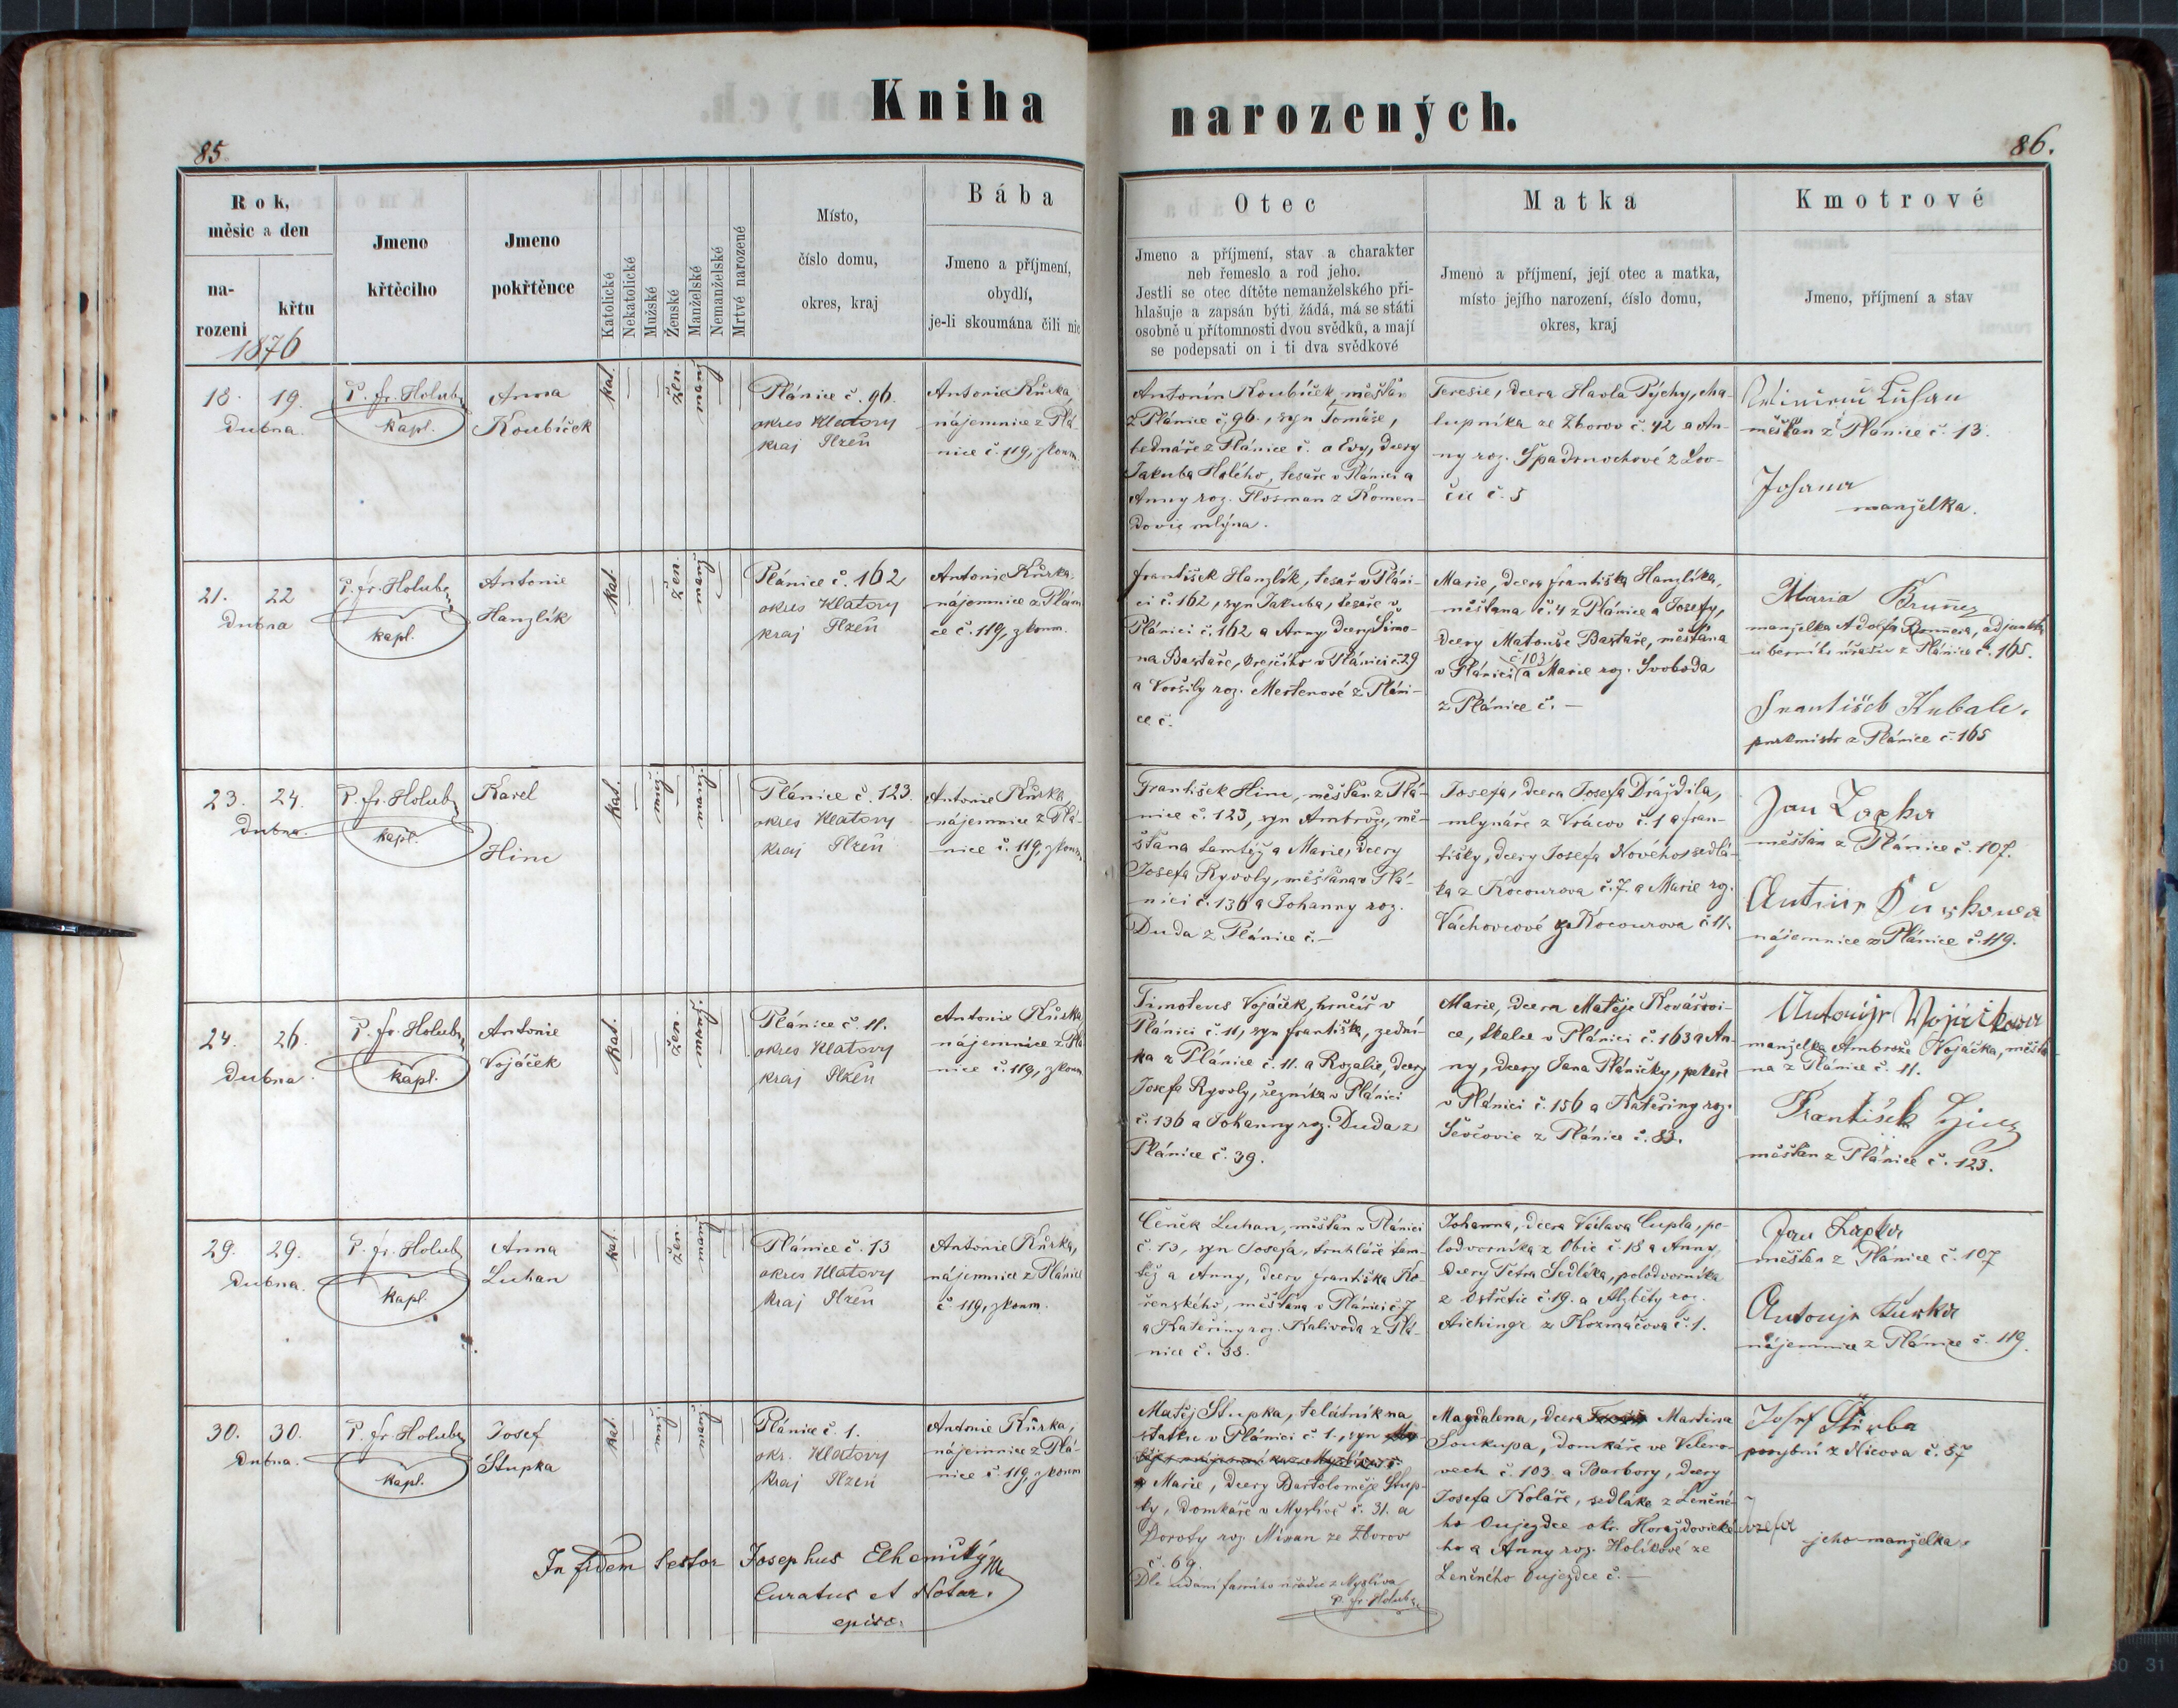 Kniha narozených.
85.
86.
Rok, měsic a den
narození
křtu
1876
Jmeno křtěcího
Jmeno pokřtěnce
Katolické
Nekatolické
Mužské
Ženské
Manželské
Nemanželské
Mrtvé narozené
Místo,
číslo domu,
okres, kraj
Bába
Jmeno a příjmení,
obydlí,
je-li skoumána čili nic
Otec
Jmeno a příjmení, stav a charakter
neb řemeslo a rod jeho.
Jestli se otec dítěte nemanželského při-
hlašuje a zapsán býti žádá, má se státi
osobně u přítomnosti dvou svědků, a mají
se podepsati on i ti dva svědkové
Matka
Jmeno a příjmení, její otec a matka,
místo jejího narození, číslo domu,
okres, kraj
Kmotrové
Jmeno, příjmení a stav
18. 19.
Dubna
P. fr. Holub
kapl.
Anna
Koubíček
kat.
žen.
manž
Plánice č. 96.
okres Klatovy
kraj Plzeň
Antonie Kůrka,
nájemnice z Plá-
nice č. 119, zkoum.
Antonín Koubíček, měšťan
z Plánice č. 96., syn Tomáše,
bednáře z Plánice č. a Evy, dcery
Jakuba Holého, tesaře v Plánici a
Anny roz. Flosman z Komen-
dovic mlýna.
Teresie, dcera Havla Pýchy, cha-
lupníka ze Zborov č. 42 a An-
ny roz. Špadrnochové z Lov-
čic č. 5
Luhan
měšťan z Plánice č. 13.
Johana
manželka.
21. 22
Dubna
P. fr. Holub
kapl.
Antonie
Hanzlík
kat.
žen.
manž
Plánice č. 162
okres Klatovy
kraj Plzeň
Antonie Kůrka,
nájemnice z Pláni
ce č. 119, zkoum.
František Hanzlík, tesař v Pláni-
ci č. 162, syn Jakuba, tesaře v
Plánici č. 162 a Anny dcery Šimo-
na Bastaře, krejčího v Plánici č. 29
a Voršily roz. Mertenové z Pláni-
ce č.
Marie, dcera Františka Hanzlíka,
měšťana č. 4 z Plánice a Josefy,
dcery Matouše Bastaře, měšťana
v Plánici č 103 a Marie roz. Svoboda
z Plánice č. —
Maria
manželka Adolfa adjunkta
uberního úřadu z Plánice č. 165.
František Kubale,
purkmistr z Plánice č. 165
23. 24.
Dubna.
P. fr. Holub
kapl.
Karel
Hinc
kat.
muž
manž.
Plánice č. 123.
okres Klatovy
kraj Plzeň
Antonie Kůrka
nájemnice z Plá-
nice č. 119, zkoum
František Hinc, měšťan z Plá-
nice č. 123, syn Ambrože, mě-
šťana tamtéž a Marie, dcery
Josefa Ryvoly, měšťana v Plá-
nici č. 136 a Johanny roz.
Duda z Plánice č. —
Josefa, dcera Josefa Dráždila,
mlynáře z Vrácov č. 1 a Fran-
tišky, dcery Josefa Nového, sedlá-
ka z Kocourova č. 7. a Marie roz.
Váchovcové z Kocourova č. 11.
Jan Zapka
měšťan z Plánice č. 107.
nájemnice z Plánice č. 119.
24. 26.
Dubna.
P. fr. Holub
kapl.
Antonie
Vojáček
kat.
žen.
manž.
Plánice č. 11.
okres Klatovy
kraj Plzeň
Antonie Kůrka
nájemnice z Plá
nice č. 119, zkoum
Timoteus Vojáček, hrnčíř v
Plánici č. 11, syn Františka, zední-
ka z Plánice č. 11. a Rozalie, dcery
Josefa Ryvoly, řezníka v Plánici
č. 136 a Johanny roz. Duda z
Plánice č. 39.
Marie, dcera Matěje Kovářovi-
ce, tkalce v Plánici č. 163 a An-
ny, dcery Jana Pláničky, pekaře
v Plánici č. 156 a Kateřiny roz.
Ševčovic z Plánice č. 83.
manželka Ambrože Vojáčka, měšťa-
na z Plánice č. 11.
František
měšťan z Plánice č. 123.
29. 29.
Dubna.
P. fr. Holub
kapl.
Anna
Luhan
kat.
žen.
manž
Plánice č. 13
okres Klatovy
kraj Plzeň
Antonie Kůrka,
nájemnice z Plánice
č. 119, zkoum.
Čeněk Luhan, měšťan v Plánici
č. 13, syn Josefa, truhláře tam-
též a Anny, dcery Františka Ko-
řenského, měšťana v Plánici č. 7
a Kateřiny roz. Kalivoda z Plá-
nice č. 38.
Johanna, dcera Václava Cupla, po-
lodvorníka z Obic č. 18 a Anny,
dcery Petra Sedláka, polodvorníka
z Ostřetic č. 19. a Alzběty roz.
Aichingr z Kozmáčova č. 1.
Jan Zapka
měšťan z Plánice č. 107
nájemnice z Plánice č. 119.
30. 30.
Dubna.
P. fr. Holub
kapl.
Josef
Stupka
kat.
muž
manž.
Plánice č. 1.
okr. Klatovy
kraj Plzeň
Antonie Kůrka,
nájemnice z Plá-
nice č. 119, zkoum
Matěj Stupka, telátník na
statku v Plánici č. 1., syn
Marie, dcery Bartoloměje Stup-
ky, domkáře v Myslívě č. 31. a
Doroty roz. Mixan ze Zborov
č. 69.
Dle udání farního úřadu z Myslíva
P. fr. Holub
Magdalena, dcera Martina
Soukupa, domkáře ve Veleno-
vech č. 103. a Barbory, dcery
Josefa Koláře, sedláka z Lenčné-
ho Oujezdce okr. Horažďovické-
ho a Anny roz. Holíkové ze
Lenčného Oujezdce č. —
Josef
z Nicova č. 57
jeho manželka.
In fidem testor Josephus Elhenický
Curatus et Notar.
episc.